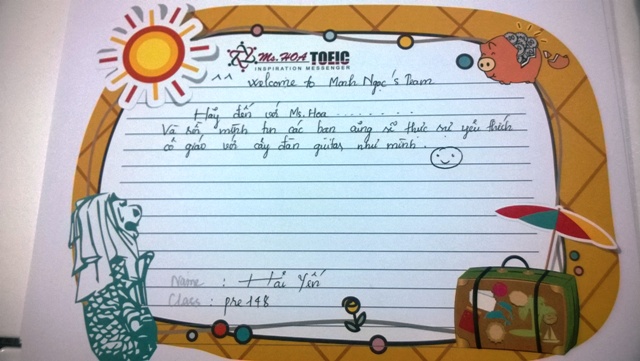 Ms.HOA TOEIC
INSPIRATION MESSENGER
^^ Welcome to Minh Ngọc's Team
Hãy đến với Ms. Hoa . . . . . . . .
Và rồi, mình tin các bạn cũng sẽ thực sự yêu thích
cô giáo với cây đàn guitar như mình.
Name : Hải Yến
Class : pre 148